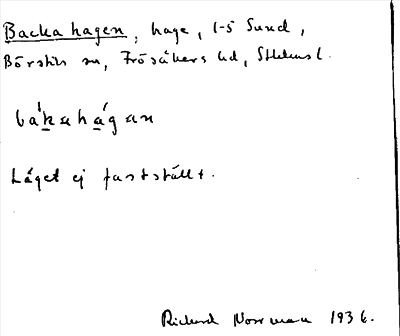 Backa hagen, hage, 1-5 Sund,
Börstils sn, Frösåkers hd, Sthlms l.
bákahágan
Läget ej fastställt.
Richard Norrman 1936.